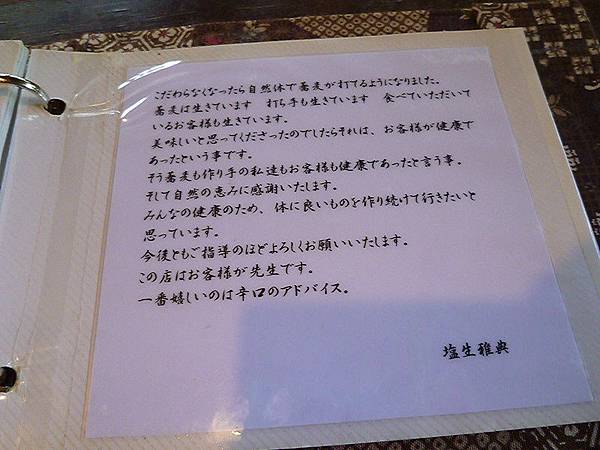 こだわらなくなったら自然体で蕎麦が打てるようになりました。
蕎麦は生きています　打ち手も生きています　食べていただいて
いるお客様も生きています。
美味しいと思ってくださったのでしたらそれは、お客様が健康で
あったという事です。
そう蕎麦も作り手の私達もお客様も健康であったと言う事。
そして自然の恵みに感謝いたします。
みんなの健康のため、体に良いものを作り続けて行きたいと
思っています。
今後ともご指導のほどよろしくお願いいたします。
この店はお客様が先生です。
一番嬉しいのは辛口のアドバイス。
塩生雅典